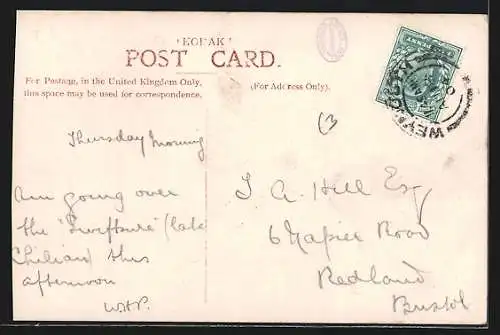 "KODAK"
POST CARD.
For Postage, in the United Kingdom Only,
this space may be used for correspondence.
(For Address Only).
Thursday Morning
Am going over
the "Swiftsure" (late
Chilian) this
afternoon
WHP.
J A Hill Esq
6 Napier Road
Redland
Bristol